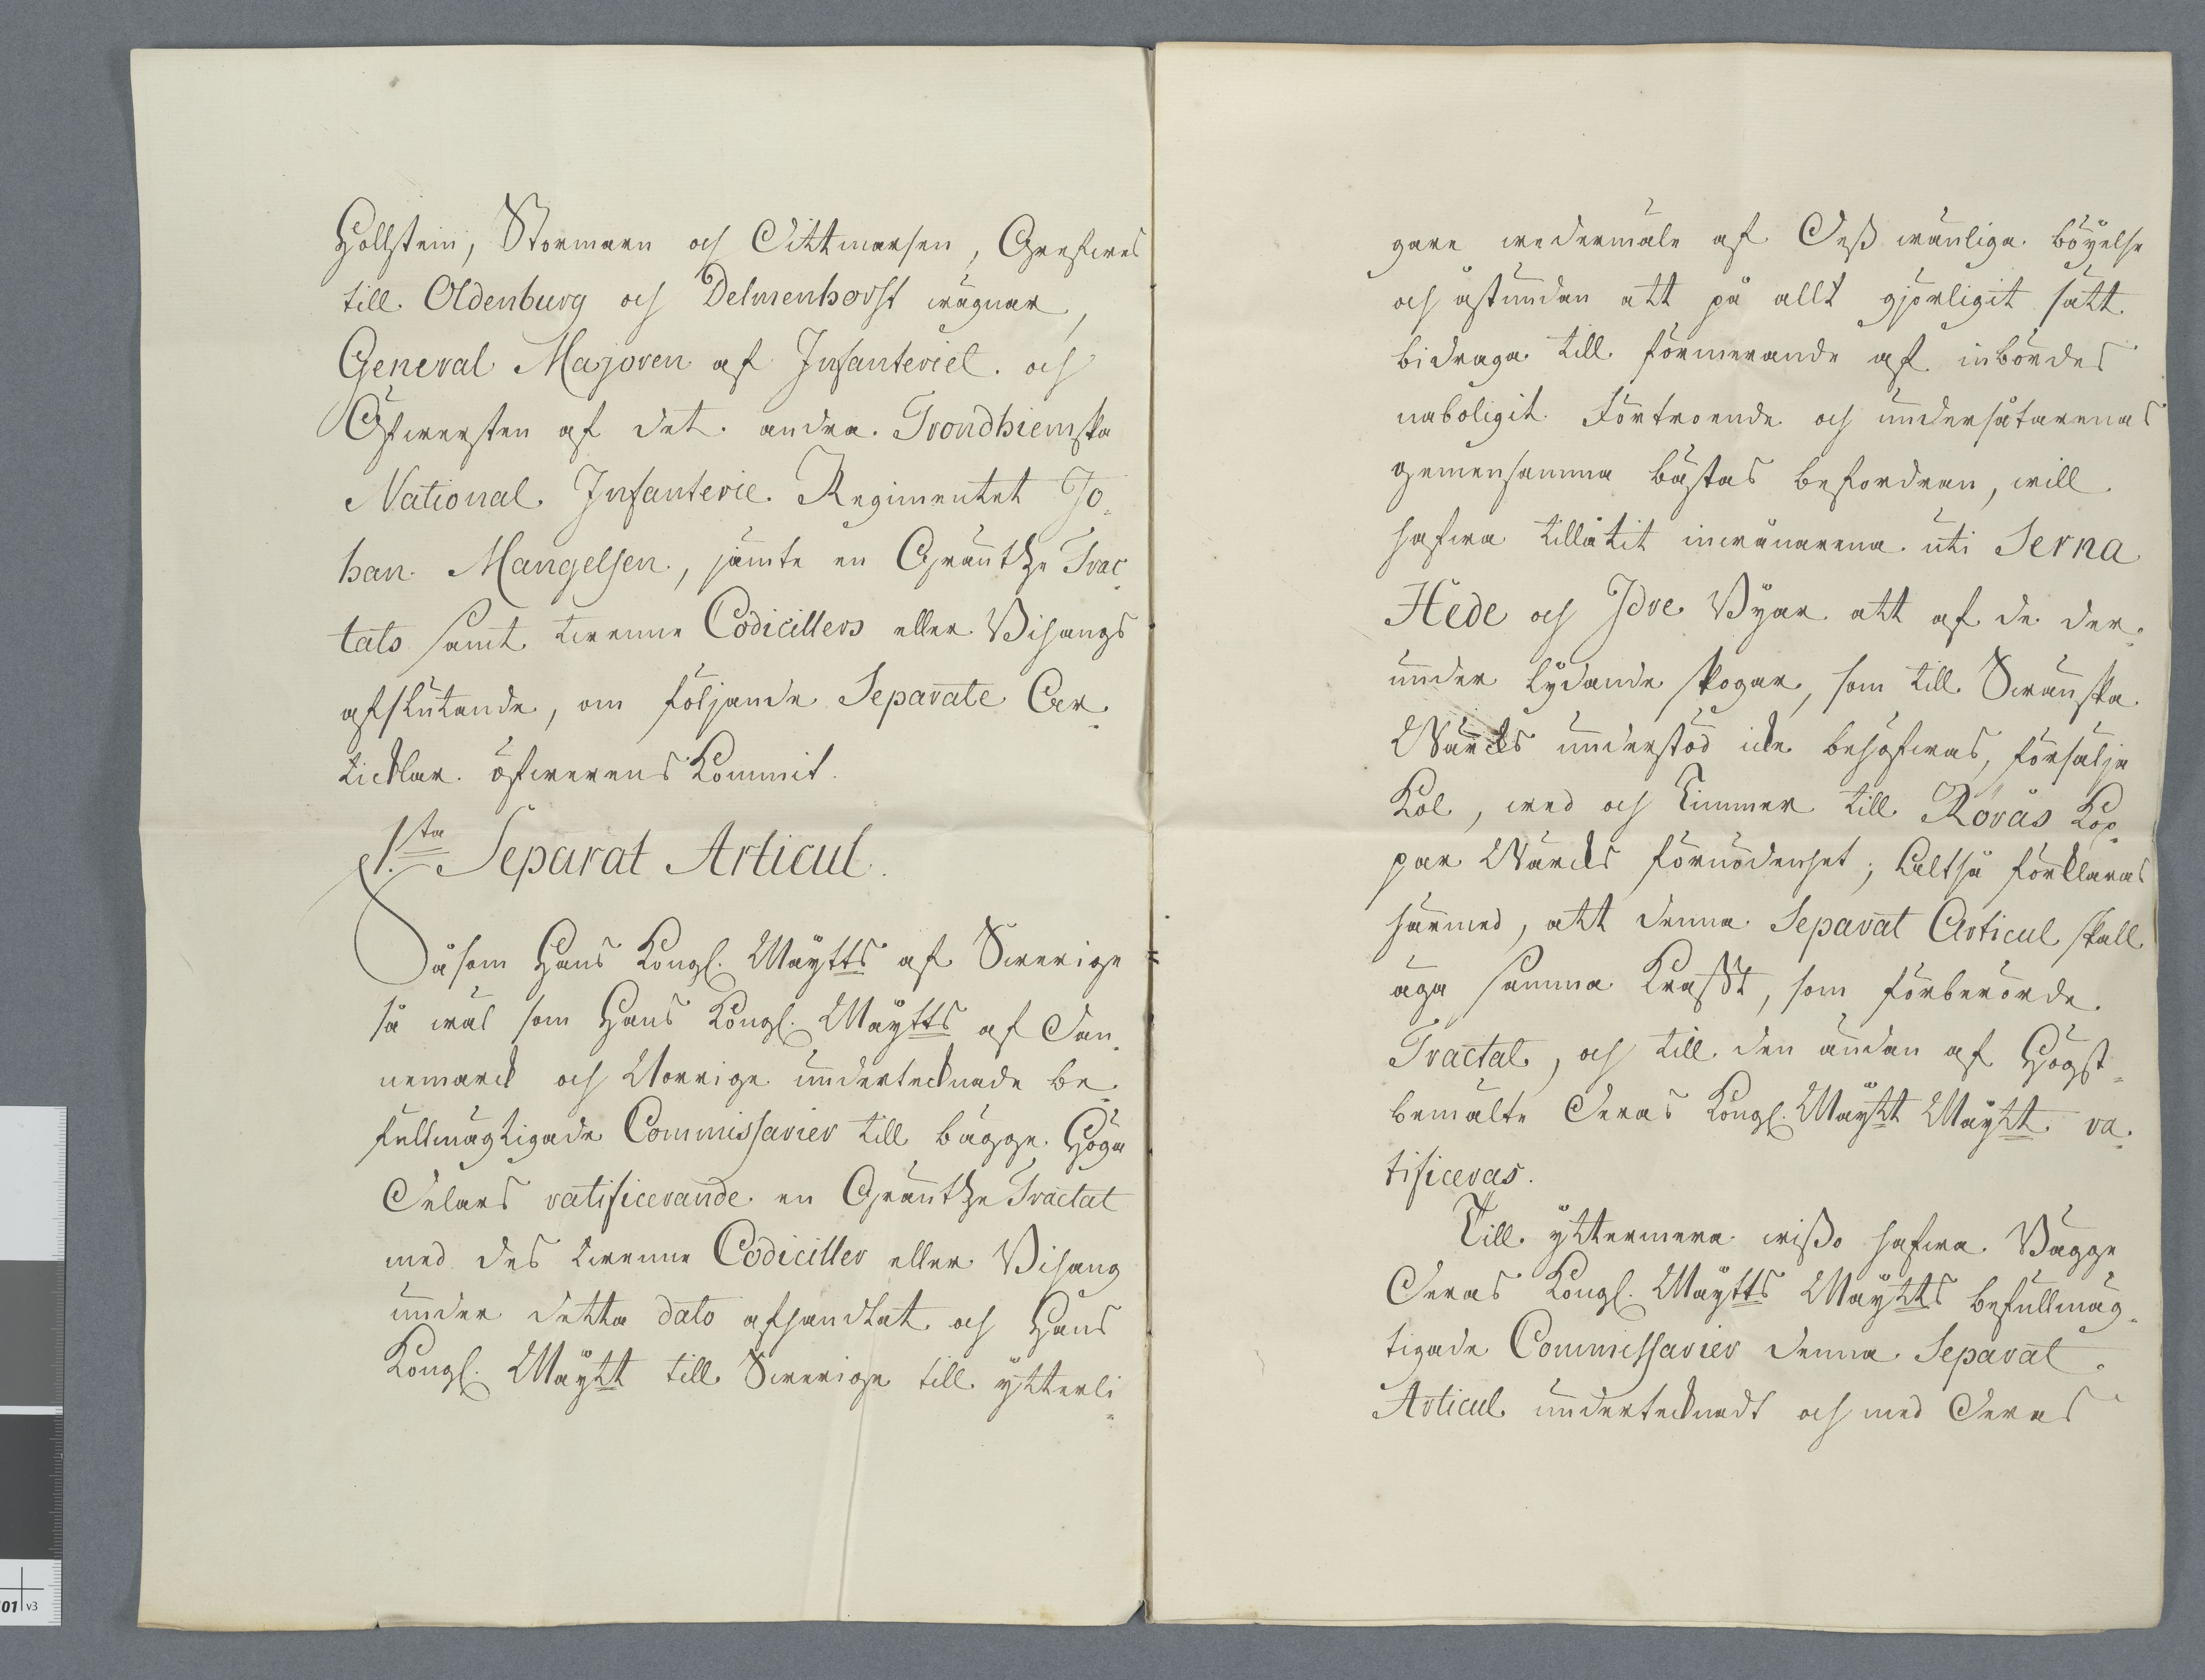 Hollstein, Stormarn och Dittmarsen, Grefwes
till Oldenburg och Delmenhorst wägnar,
General Majoren af Infanteriet och
Öfwersten af det andra Trondhiemska
National Infanterie Regimentet Jo-
han Mangelsen, jämte en Gräntze Trac-
tats samt twenne Codicillers eller Bihangs
afslutande, om följande Separate Ar-
ticklar öfwerens kommit.
1.sta Separat Articul.
Såsom Hans Kongl. Maÿtts af Swerige
så wäl som Hans Kongl. Maÿtts af Dan-
nemarck och Norrige undertecknade be-
fullmägtigade Commissarier till bägge Höga
Delars ratificerande en Gräntze Tractat
med des twenne Codiciller eller Bihang
under detta dato afhandlat och Hans
Kongl. Maÿtt till Swerige till ÿtterli-
gare wedermäle af Deß wänliga böÿelse
och åstundan att på allt gjörligit sätt
bidraga till förmerande af inbördes
naboligit förtroende och undersåtarenas
gemensamma bästas befordran, will
hafwa tillåtit inwånarena uti Serna
Hede och Idre Bÿar att af de der-
under lÿdande skogar, som till Swänska
Wärcks understöd icke behöfwas, försälja
Kol, wed och Timmer till Rörås Kop-
par Wärcks förnödenhet; Altså förklaras
härmed, att denna Separat Articul skall
äga samma Krafft, som förberörde
Tractat, och till den ändan af Högst-
bemälte Deras Kongl. Maÿtt Maÿtt ra-
tificeras.
Till ÿttermera wißo hafwa Bägge
Deras Kongl. Maÿtts Maÿtts befullmäg-
tigade Commissarier denna Separat
Articul undertecknadt och med Deras
01 v3